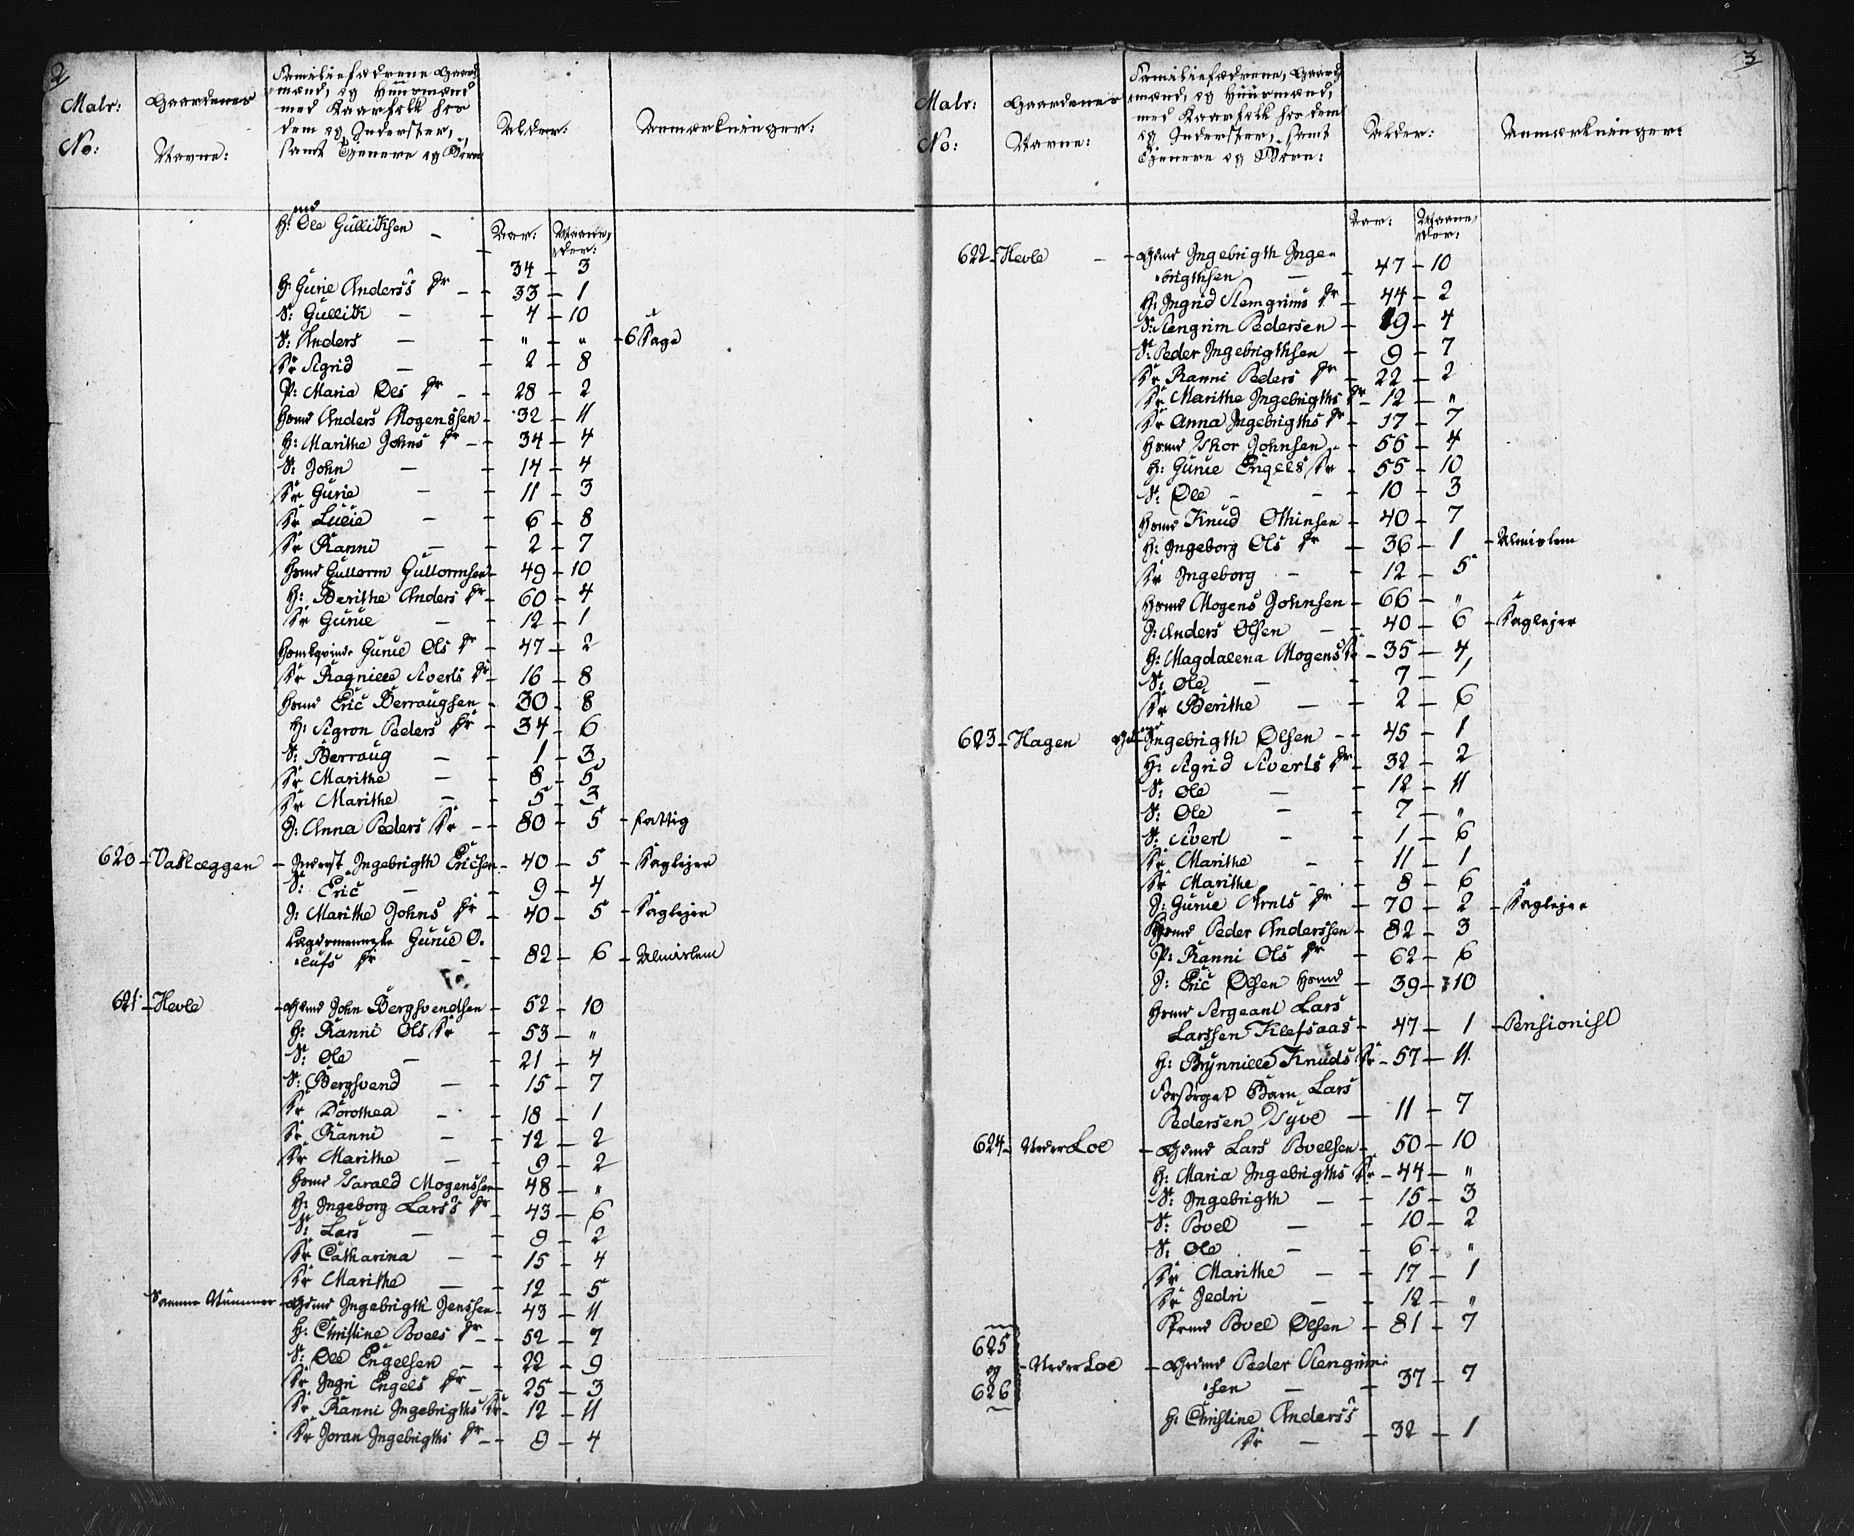 2
Matr:
No:
Gaardenes
Navne:
Familiefædrene, Gaard
mænd, og Huusmænd
med Kaarfolk hos
dem og Inderster,
samt Tjenere og Børn
Alder:
Anmærkninger:
Aar: Maane,
der:
H:md Ole Gullichsen –
34 – 3
H: Gurie Anderss Dr – 33 – 1
S: Gullich – 4 – 10
S: Anders – " – " – 6 Dage
Dr Sigrid – 2 – 8
P: Maria Ols Dr – 28 – 2
Hsmd Anders Mogenssen – 32 – 11
H: Marithe Johns Dr – 34 – 4
S: John – 14 – 4
Dr Gurie – 11 – 3
Dr Lucie – 6 – 8
Dr Ranni – 2 – 7
Hsmd Guttorm Guttormsen – 49 – 10
H: Berithe Anders Dr – 60 – 4
Dr Gurie – 12 – 1
Huuskqvinde Gurie Ols Dr – 47 – 2
Dr Ragnille Siverts Dr – 16 – 8
Hsmd Eric Berraugsen – 30 – 8
H: Sigron Peders Dr – 34 – 6
S: Berraug – 1 – 3
Dr Marithe – 8 – 5
Dr Marithe – 5 – 3
I: Anna Peders Dr – 80 – 5 – Fattig
620 – Vasleggen – Inderst Ingebrigth Ericsen – 40 – 5 – Daglejer
S: Eric – 9 – 4
I: Marithe Johns Dr – 40 – 5 – Daglejer
Lægdsmenneske Gurie O.
lufs Dr – 82 – 6 – Almislem
621 – Hevle – Gdmd John Bergsvendsen – 52 – 10
H: Ranni Ols Dr – 53 – "
S: Ole – 21 – 4
S: Bergsvend – 15 – 7
Dr Dorothea – 18 – 1
Dr Ranni – 12 – 2
Dr Marithe – 9 – 2
Hsmd Harald Mogenssen – 48 – "
H: Ingeborg Larss Dr – 43 – 6
S: Lars – 9 – 2
Dr Catharina – 15 – 4
Dr Marithe – 12 – 5
Samme Nummer – Gdmd Ingebrigth Jenssen – 43 – 11
H: Christine Povels Dr – 52 – 7
S: Ole Engelsen – 22 – 9
Dr Ingri Engels Dr – 25 – 3
Dr Ranni Ingebrigths Dr – 12 – 11
Dr Joran Ingebrigths Dr – 9 – 4
3
Matr:
No:
Gaardenes
Navne:
Familiefædrene, Gaard
mænd, og Huusmænd,
med Kaarfolk hos dem
og Inderster, samt
Tjenere og Børn:
Alder:
Anmærkninger:
Aar: Maane,
der:
622 – Hevle – Gdmd Ingebrigth Inge-
brigthsen – 47 – 10
H: Ingrid Stemgrims Dr – 44 – 2
S: Stengrim Pedersen – 19 – 4
S: Peder Ingebrigthsen – 9 – 7
Dr Ranni Peders Dr – 22 – 2
Dr Marithe Ingebrigths Dr – 12 – "
Dr Anna Ingebrigths Dr – 17 – 7
Hsmd Thor Johnsen – 56 – 4
H: Gurie Engels Dr – 55 – 10
S: Ole – 10 – 3
Hsmd Knud Othinsen – 40 – 7
H: Ingeborg Ols Dr – 36 – 1 – Almislem
Dr Ingeborg – 12 – 5
Hsmd Mogens Johnsen – 66 – "
I: Anders Olsen – 40 – 6 – Daglejer
H: Magdalena Mogens Dr – 35 – 4
S: Ole – 7 – 1
Dr Berithe – 2 – 6
623 – Hagen Gdmd Ingebrigth Olsen – 45 – 1
H: Sigrid Siverts Dr – 32 – 2
S: Ole – 12 – 11
S: Ole – 7 – "
S: Sivert – 1 – 6
Dr Marithe – 11 – 1
Dr Marithe – 8 – 6
I: Gurie Arnts Dr – 70 – 2 – Daglejer
Hsmd Peder Anderssen – 82 – 3
P: Ranni Ols Dr – 62 – 6
I: Eric Olsen Hsmd – 39 – 10
Hsmd Sergeant Lars
Larssen Klefsaas – 47 – 1 – Pensionist
H: Brynnille Knuds Dr – 57 – 11
Forsørget Barn Lars
Pedersen Tyve – 11 – 7
624 – Nedre Loe – Gdmd Lars Povelsen – 50 – 10
H: Maria Ingebrigths Dr – 44 – "
S: Ingebrigth – 15 – 3
S: Povel – 10 – 2
S: Ole – 6 – "
Dr Marithe – 17 – 1
Dr Jedri – 12 – "
Povel Olsen – 81 – 7
625
og
626
– Nedre Loe – Gdmd Peder Stengrim
sen – 37 – 7
H: Christine Anderss
Dr – 32 – 1